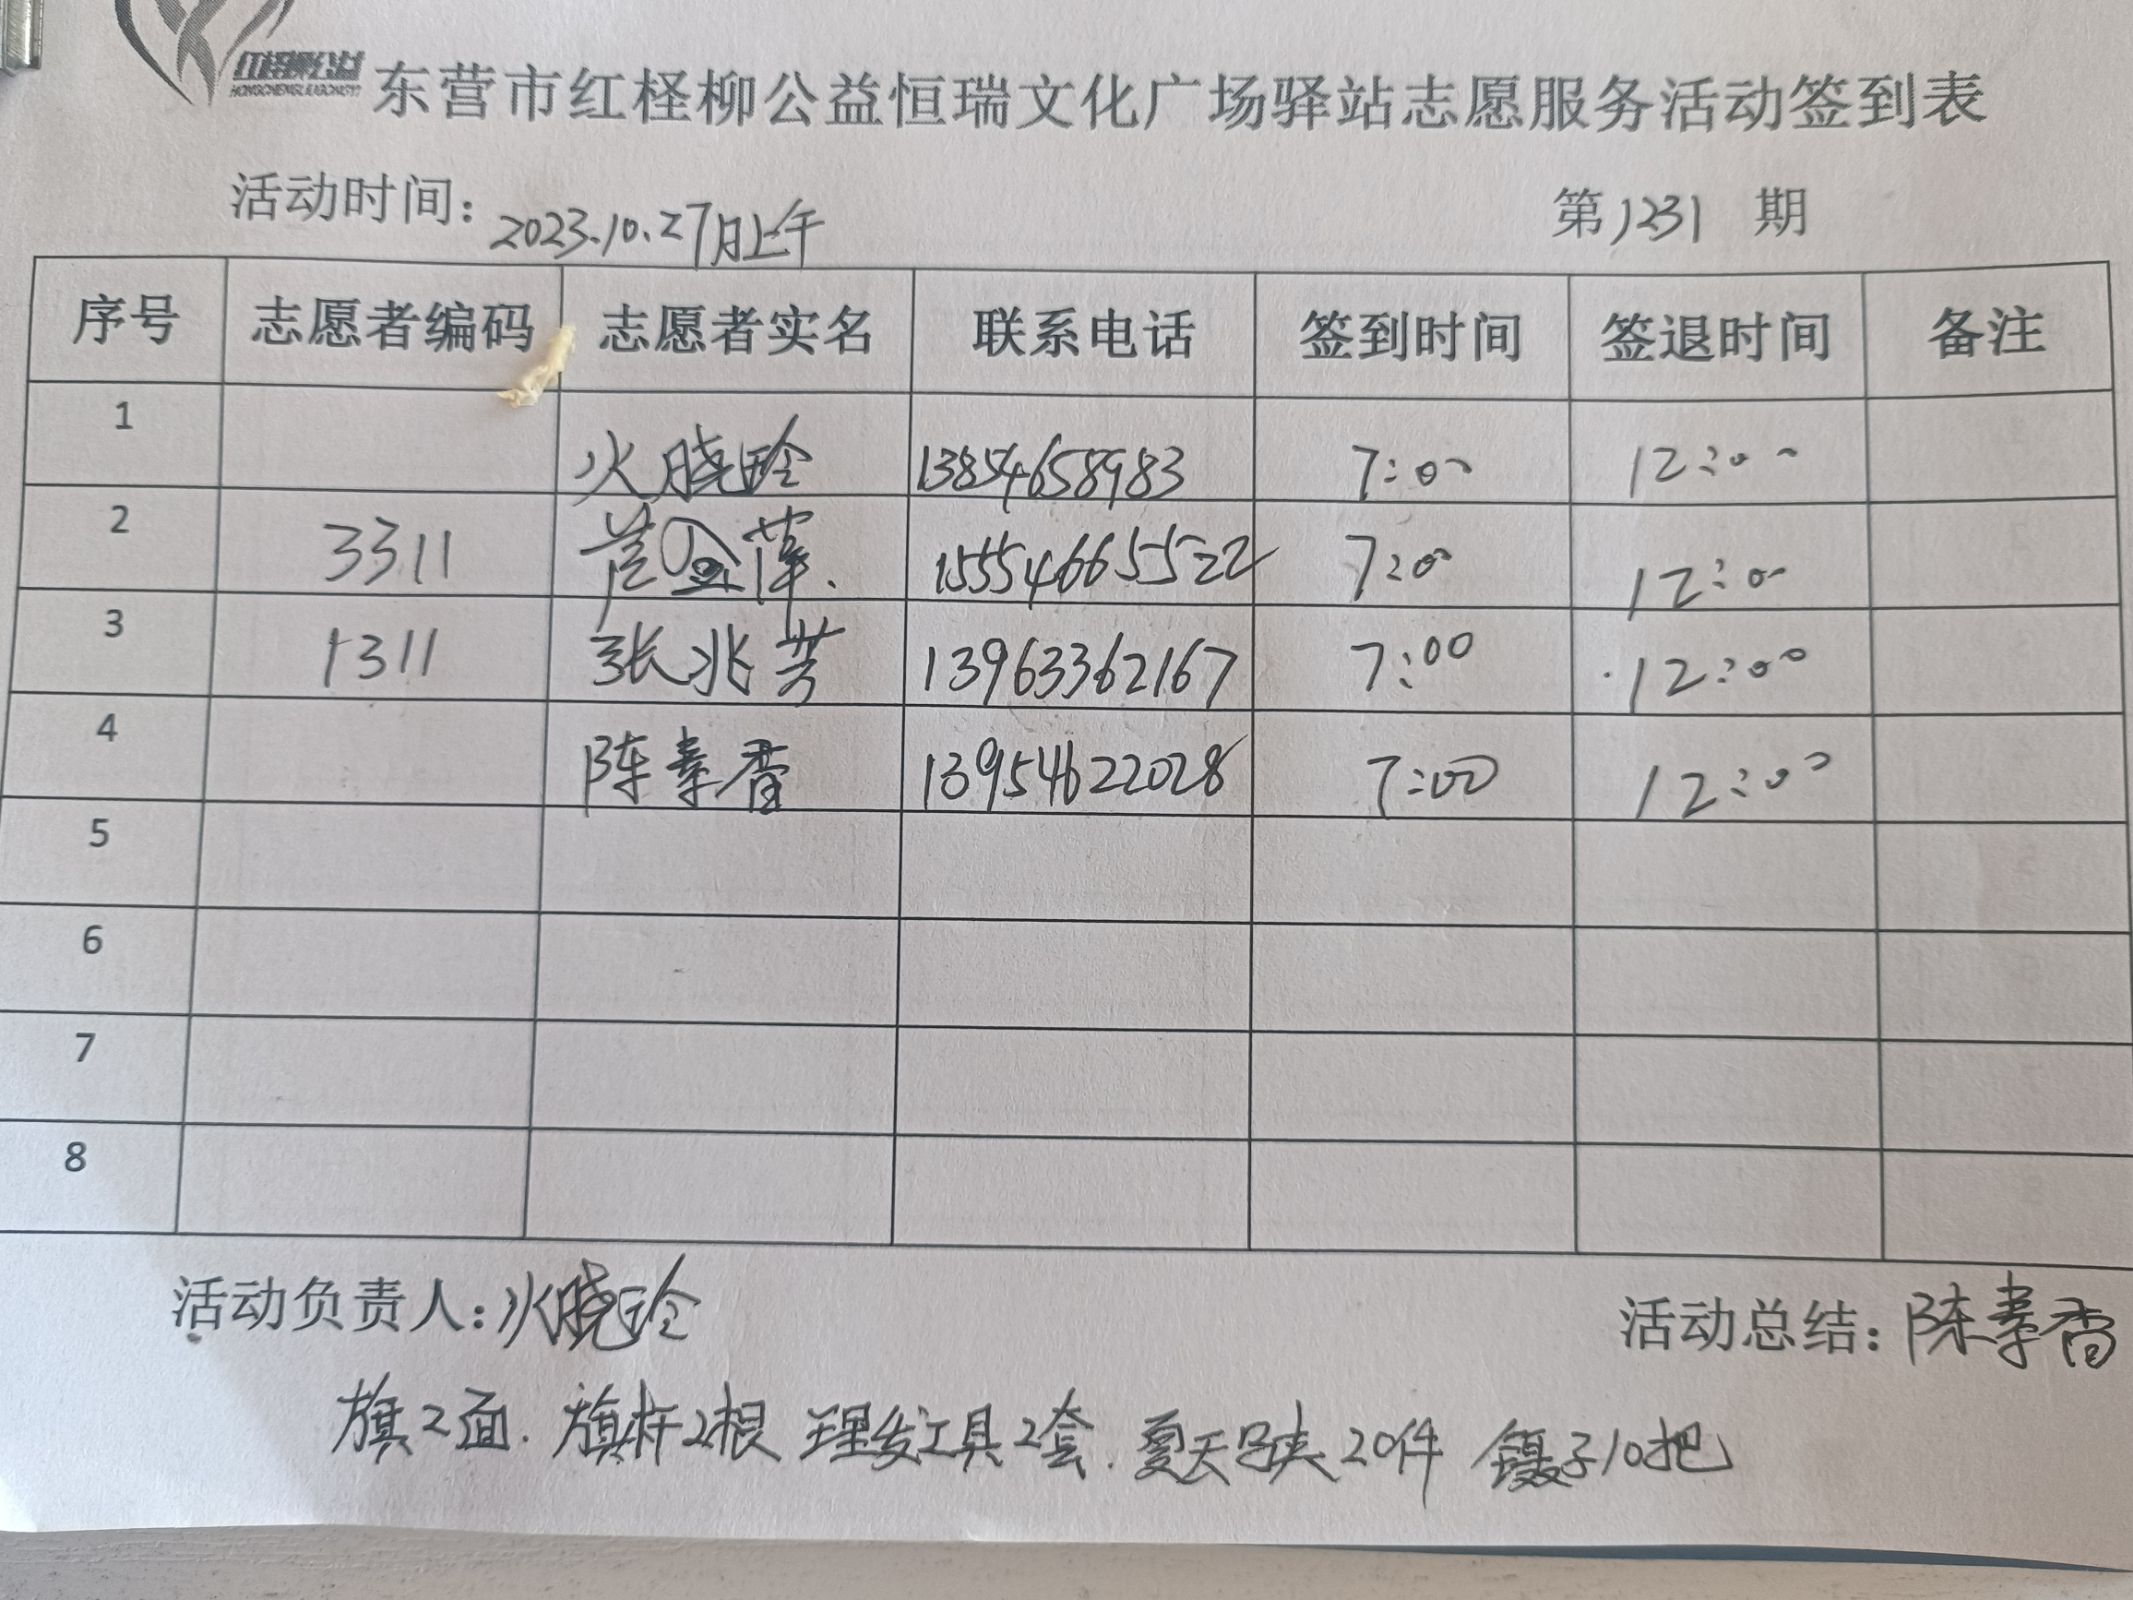 红柽柳公益
东营市红柽柳公益恒瑞文化广场驿站志愿服务活动签到表
活动时间：2023.10.27日上午 第1231期
序号 志愿者编码 志愿者实名 联系电话 签到时间 签退时间 备注
1 火晓玲 13854658983 7:00 12:00
2 3311 萍 15554665522 7:00 12:00
3 1311 张兆芳 13963362167 7:00 12:00
4 陈素香 13954622028 7:00 12:00
5
6
7
8
活动负责人：火晓玲 活动总结：陈素香
旗2面. 旗杆2根 理发工具2套. 夏天马夹20件 镊子10把